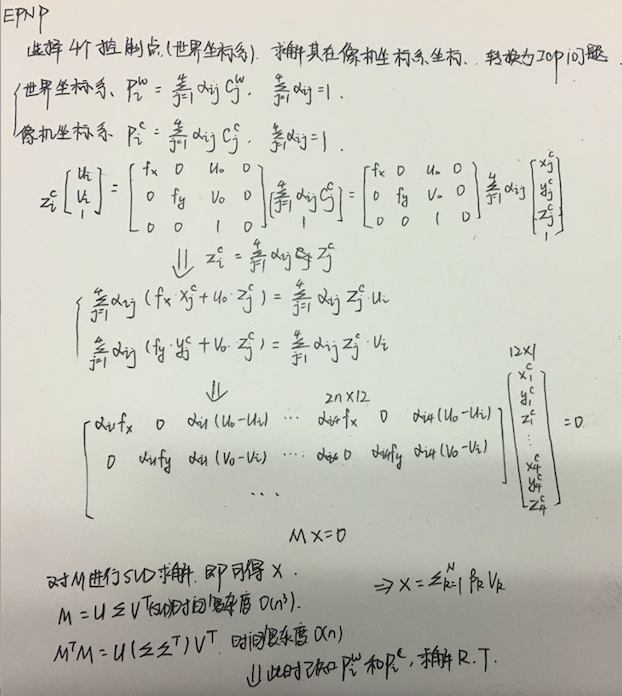 EPNP
选择4个控制点(世界坐标系). 求解其在像机坐标系坐标. 转换为Icp问题.
{ 世界坐标系. P_i^w = Σ_{j=1}^4 α_ij C_j^w. Σ_{j=1}^4 α_ij = 1.
像机坐标系. P_i^c = Σ_{j=1}^4 α_ij C_j^c. Σ_{j=1}^4 α_ij = 1.
Z_i^c [u_i v_i 1] = [fx 0 u_0 0; 0 fy v_0 0; 0 0 1 0] [Σ_{j=1}^4 α_ij C_j^c; 1] = [fx 0 u_0 0; 0 fy v_0 0; 0 0 1 0] Σ_{j=1}^4 α_ij [x_j^c; y_j^c; z_j^c; 1]
⇓ Z_i^c = Σ_{j=1}^4 α_ij Z_j^c
{ Σ_{j=1}^4 α_ij (fx·x_j^c + u_0·Z_j^c) = Σ_{j=1}^4 α_ij Z_j^c·u_i
Σ_{j=1}^4 α_ij (fy·y_j^c + v_0·Z_j^c) = Σ_{j=1}^4 α_ij Z_j^c·v_i
⇓ 2n×12 12×1
[α_i1 fx 0 α_i1(u_0-u_i) ··· α_i4 fx 0 α_i4(u_0-u_i)
0 α_i1 fy α_i1(v_0-v_i) ···· 0 α_i4 fy α_i4(v_0-v_i)
···] [x_1^c y_1^c z_1^c ⋮ x_4^c y_4^c z_4^c] = 0
MX=0
对M进行SVD求解. 即可得X. ⇒ X = Σ_{k=1}^N β_k V_k
M = U Σ V^T 时间复杂度 O(n³).
M^T M = U(ΣΣ^T)V^T. 时间复杂度 O(n)
⇓ 此时已知 P_i^w 和 P_i^c, 求解R.T.